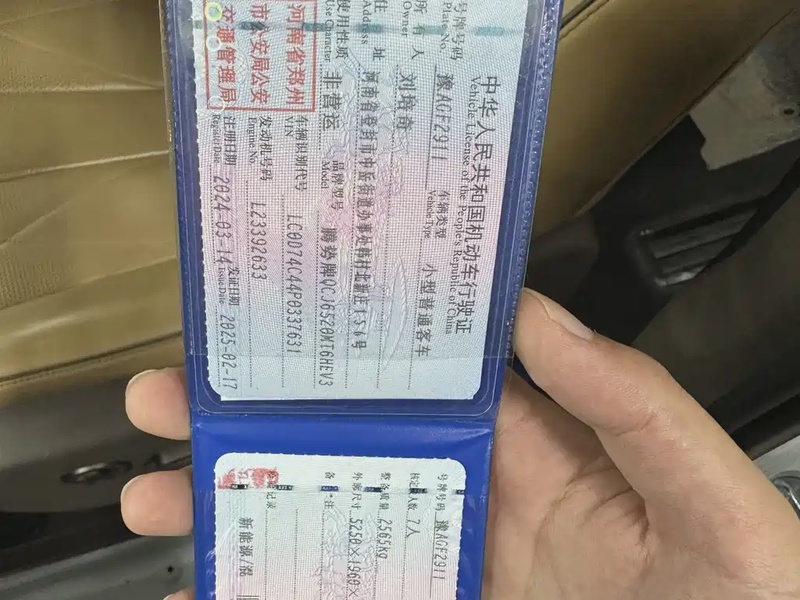 中华人民共和国机动车行驶证
Vehicle License of the People's Republic of China
号牌号码 豫AGF2911 车辆类型 小型普通客车
Plate No. Vehicle Type
所有人 刘培奇
Owner
住址 河南省登封市中岳街道办事处韩村北新庄156号
Address
使用性质 非营运 品牌型号 腾势牌QCJ6520MT6HEV3
Use Character Model
河南省郑州
市公安局公安
交通管理局
车辆识别代号 LC0D74C44P0337631
VIN
发动机号码 L23392633
Engine No.
注册日期 2024-03-14 发证日期 2025-02-17
Register Date Issue Date
号牌号码 豫AGF2911
核定载人数 7人
整备质量 2565kg
外廓尺寸 5250×1960×
备注
记录
新能源/混